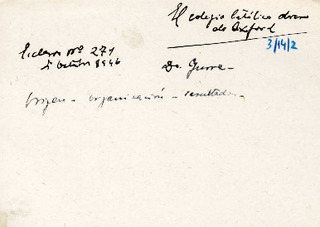 El colegio Católico obrero
de Oxford
3/14/2
nº 271
Octubre 1946
Dr. Guerra -
Origen - organización - resultados -